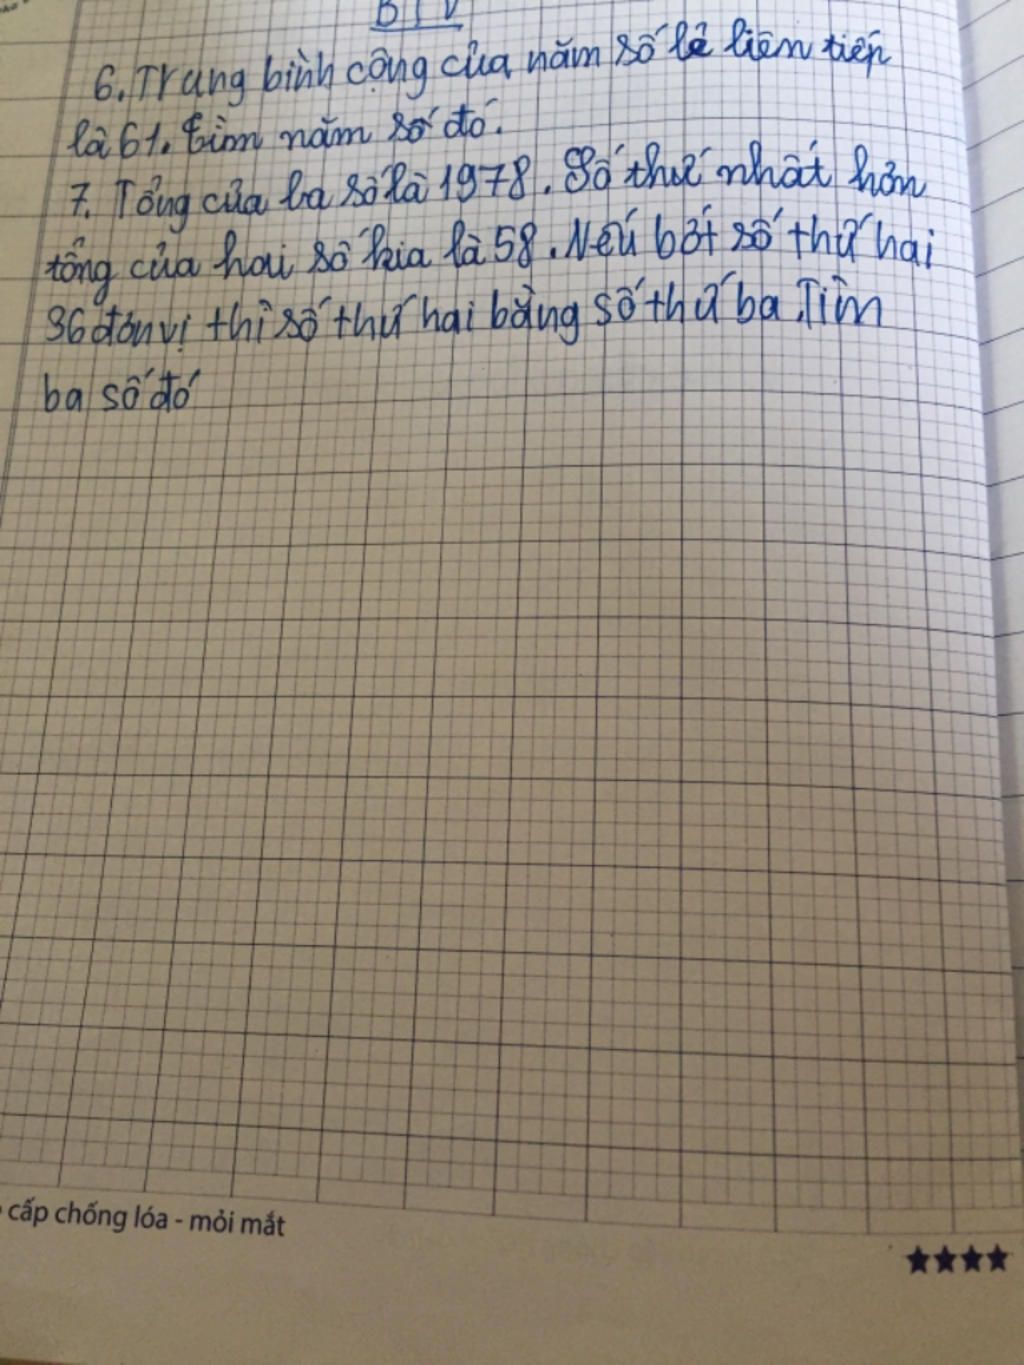 BTV
6. Trung bình cộng của năm số lẻ liên tiếp
là 61. Tìm năm số đó.
7. Tổng của ba số là 1978. Số thứ nhất hơn
tổng của hai số kia là 58. Nếu bớt số thứ hai
36 đơn vị thì số thứ hai bằng số thứ ba. Tìm
ba số đó
cấp chống lóa - mỏi mắt